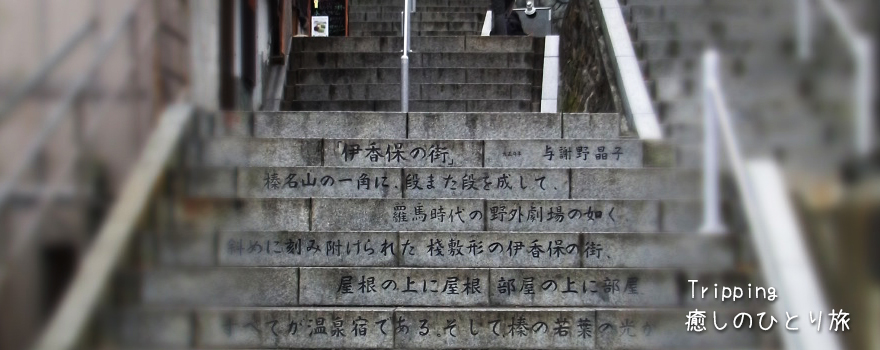 「伊香保の街」 与謝野晶子
榛名山の一角に、段また段を成して、
羅馬時代の野外劇場の如く
斜めに刻み附けられた 棧敷形の伊香保の街、
屋根の上に屋根、部屋の上に部屋
すべてが温泉宿である。そして、榛の若葉の光が
Tripping
癒しのひとり旅